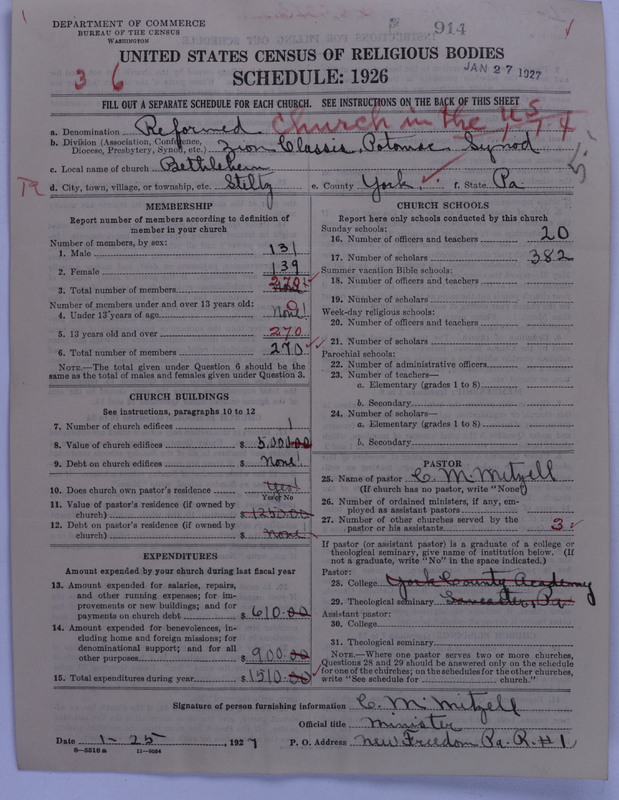 DEPARTMENT OF COMMERCE
BUREAU OF THE CENSUS
WASHINGTON
914
UNITED STATES CENSUS OF RELIGIOUS BODIES
SCHEDULE: 1926
JAN 27 1927
3 6
FILL OUT A SEPARATE SCHEDULE FOR EACH CHURCH. SEE INSTRUCTIONS ON THE BACK OF THIS SHEET
a. Denomination Reformed Church in the U.S.
b. Division (Association, Conference, Diocese, Presbytery, Synod, etc.) Zion Classis, Potomac Synod
c. Local name of church Bethlehem
d. City, town, village, or township, etc. Stiltz e. County York f. State Pa
MEMBERSHIP
Report number of members according to definition of
member in your church
Number of members, by sex:
1. Male 131
2. Female 139
3. Total number of members 270
Number of members under and over 13 years old:
4. Under 13 years of age None! 0
5. 13 years old and over 270
6. Total number of members 270
NOTE.—The total given under Question 6 should be the
same as the total of males and females given under Question 3.
CHURCH BUILDINGS
See instructions, paragraphs 10 to 12
7. Number of church edifices 1
8. Value of church edifices $ 5,000.00
9. Debt on church edifices $ None!
10. Does church own pastor's residence Yes!
Yes or No
11. Value of pastor's residence (if owned by
church) $ 1250.00
12. Debt on pastor's residence (if owned by
church) $ None!
EXPENDITURES
Amount expended by your church during last fiscal year
13. Amount expended for salaries, repairs,
and other running expenses; for im-
provements or new buildings; and for
payments on church debt $ 610.00
14. Amount expended for benevolences, in-
cluding home and foreign missions; for
denominational support; and for all
other purposes $ 900.00
15. Total expenditures during year $ 1510.00
CHURCH SCHOOLS
Report here only schools conducted by this church
Sunday schools:
16. Number of officers and teachers 20
17. Number of scholars 382
Summer vacation Bible schools:
18. Number of officers and teachers
19. Number of scholars
Week-day religious schools:
20. Number of officers and teachers
21. Number of scholars
Parochial schools:
22. Number of administrative officers
23. Number of teachers—
a. Elementary (grades 1 to 8)
b. Secondary
24. Number of scholars—
a. Elementary (grades 1 to 8)
b. Secondary
PASTOR
25. Name of pastor C. M. Mitzell
(If church has no pastor, write "None")
26. Number of ordained ministers, if any, em-
ployed as assistant pastors
27. Number of other churches served by the
pastor or his assistants 3
If pastor (or assistant pastor) is a graduate of a college or
theological seminary, give name of institution below. (If
not a graduate, write "No" in the space indicated.)
Pastor:
28. College York County Academy
29. Theological seminary Lancaster, Pa
Assistant pastor:
30. College
31. Theological seminary
NOTE.—Where one pastor serves two or more churches,
Questions 28 and 29 should be answered only on the schedule
for one of the churches; on the schedules for the other churches,
write "See schedule for church."
Signature of person furnishing information C. M. Mitzell
Official title Minister
Date 1-25, 1927 P. O. Address New Freedom Pa. R. #1
8—5518a 11—9064